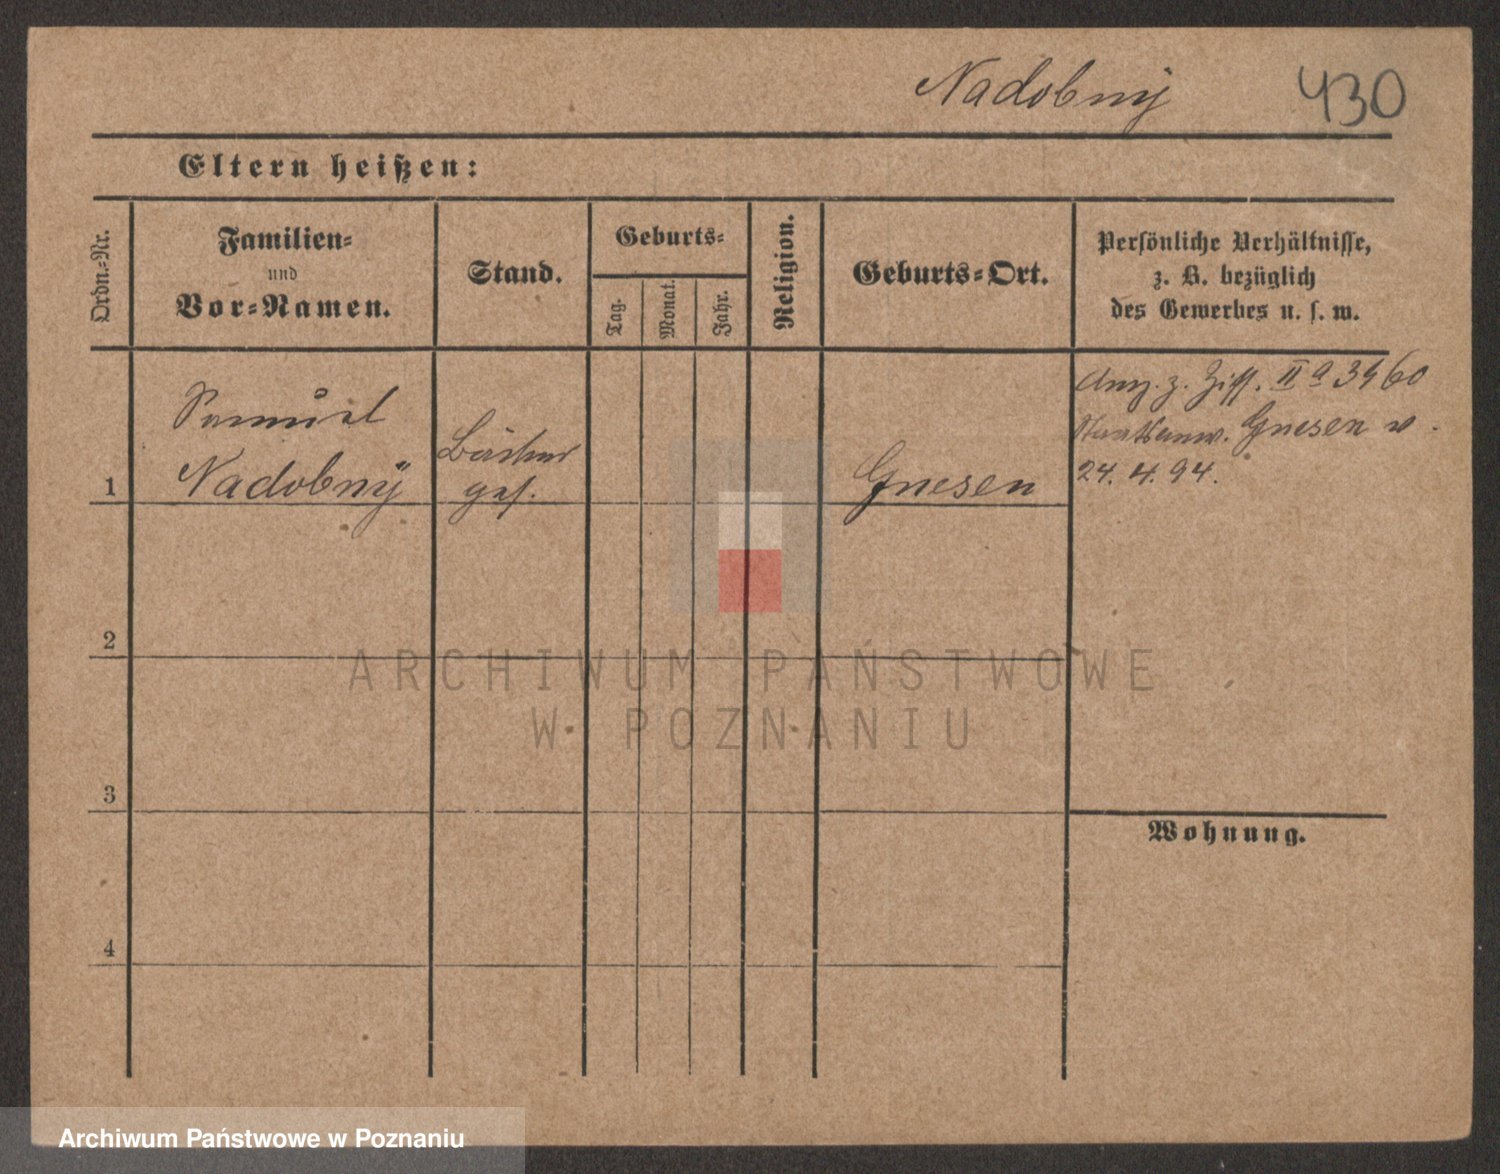 Nadobny 430
Eltern heißen:
Ordn.-Nr.
Familien-
und
Vor-Namen.
Stand.
Geburts-
Tag.
Monat.
Jahr.
Religion.
Geburts-Ort.
Persönliche Verhältnisse,
z. B. bezüglich
des Gewerbes u. s. w.
Samuel
Nadobny
Bäcker
ges.
Gnesen
Anz. z. Ziff. II a 3460
Staatsanw. Gnesen v.
24. 4. 94.
1
2
3
4
Wohnung.
ARCHIWUM PAŃSTWOWE
W POZNANIU
Archiwum Państwowe w Poznaniu